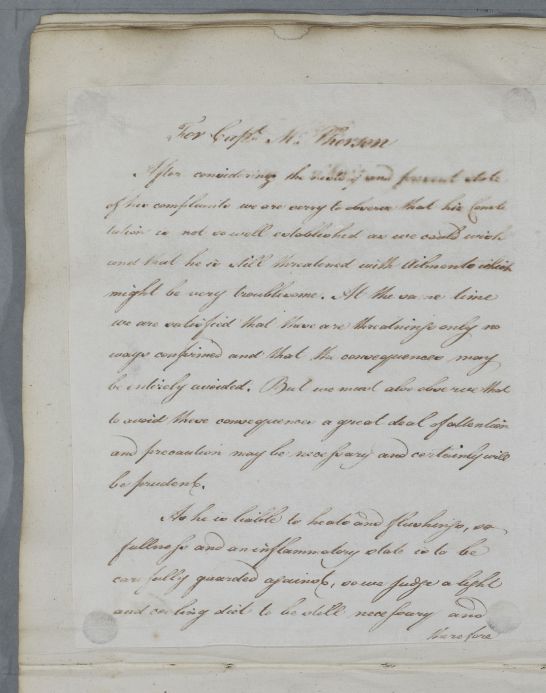 For Capt. Mc. Pherson
After considering the history and present state
of his complaints we are sorry to observe that his Consti
tution is not so well established as we could wish
and that he is still threatened with ailments which
might be very troublesome. At the same time
we are satisfied that these are threatnings only no
ways confirmed and that the consequences may
be entirely avoided. But we must also observe that
to avoid these consequences a great deal of attention
and precaution may be necessary and certainly will
be prudent.
As he is liable to heats and flushings, so
fullness and an inflammatory state is to be
carefully guarded against, so we judge a light
and cooling diet to be still necessary and
therefore